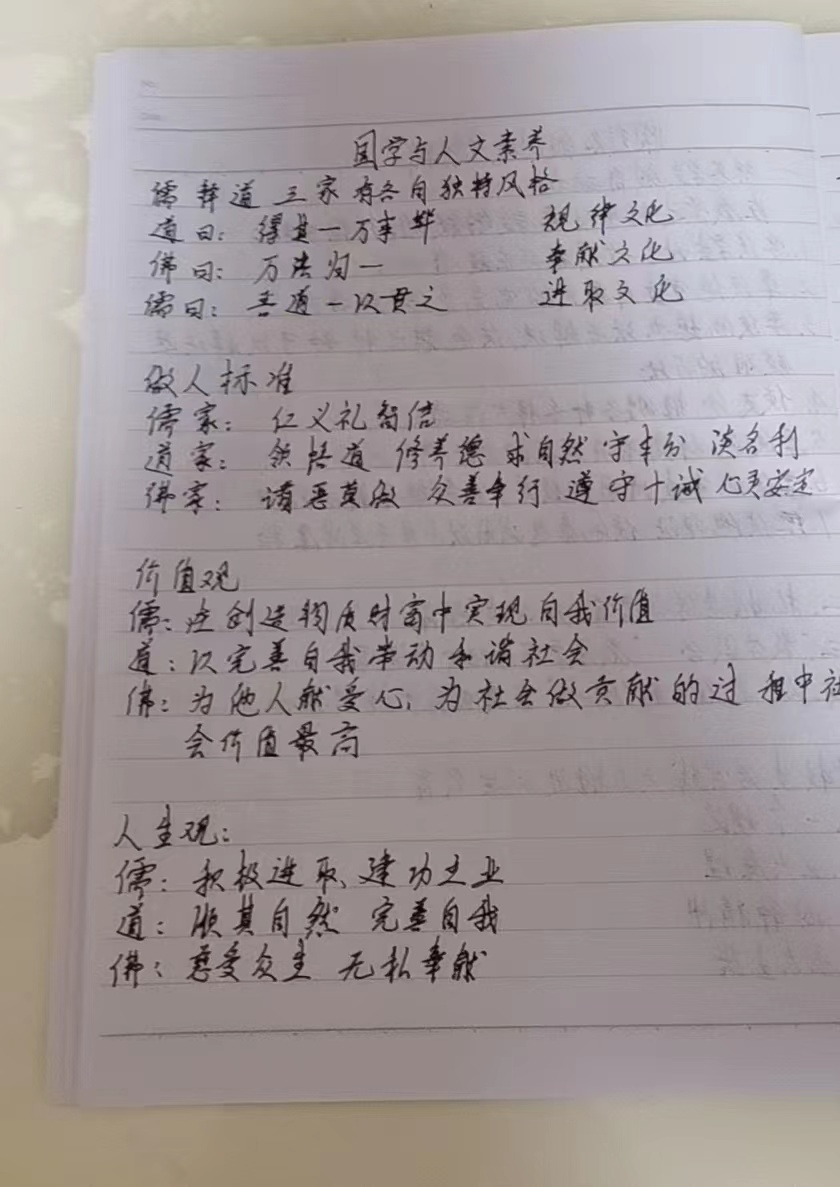 国学与人文素养
儒释道 三家有各自独特风格
道曰：得其一万事毕 规律文化
佛曰：万法归一 奉献文化
儒曰：吾道一以贯之 进取文化
做人标准
儒家：仁义礼智信
道家：领悟道 修养德 求自然 守本分 淡名利
佛家：诸恶莫做 众善奉行 遵守十诫 心灵安定
价值观
儒：在创造物质财富中实现自我价值
道：以完善自我带动和谐社会
佛：为他人献爱心，为社会做贡献的过程中社
会价值最高
人生观：
儒：积极进取、建功立业
道：顺其自然 完善自我
佛：慈爱众生 无私奉献